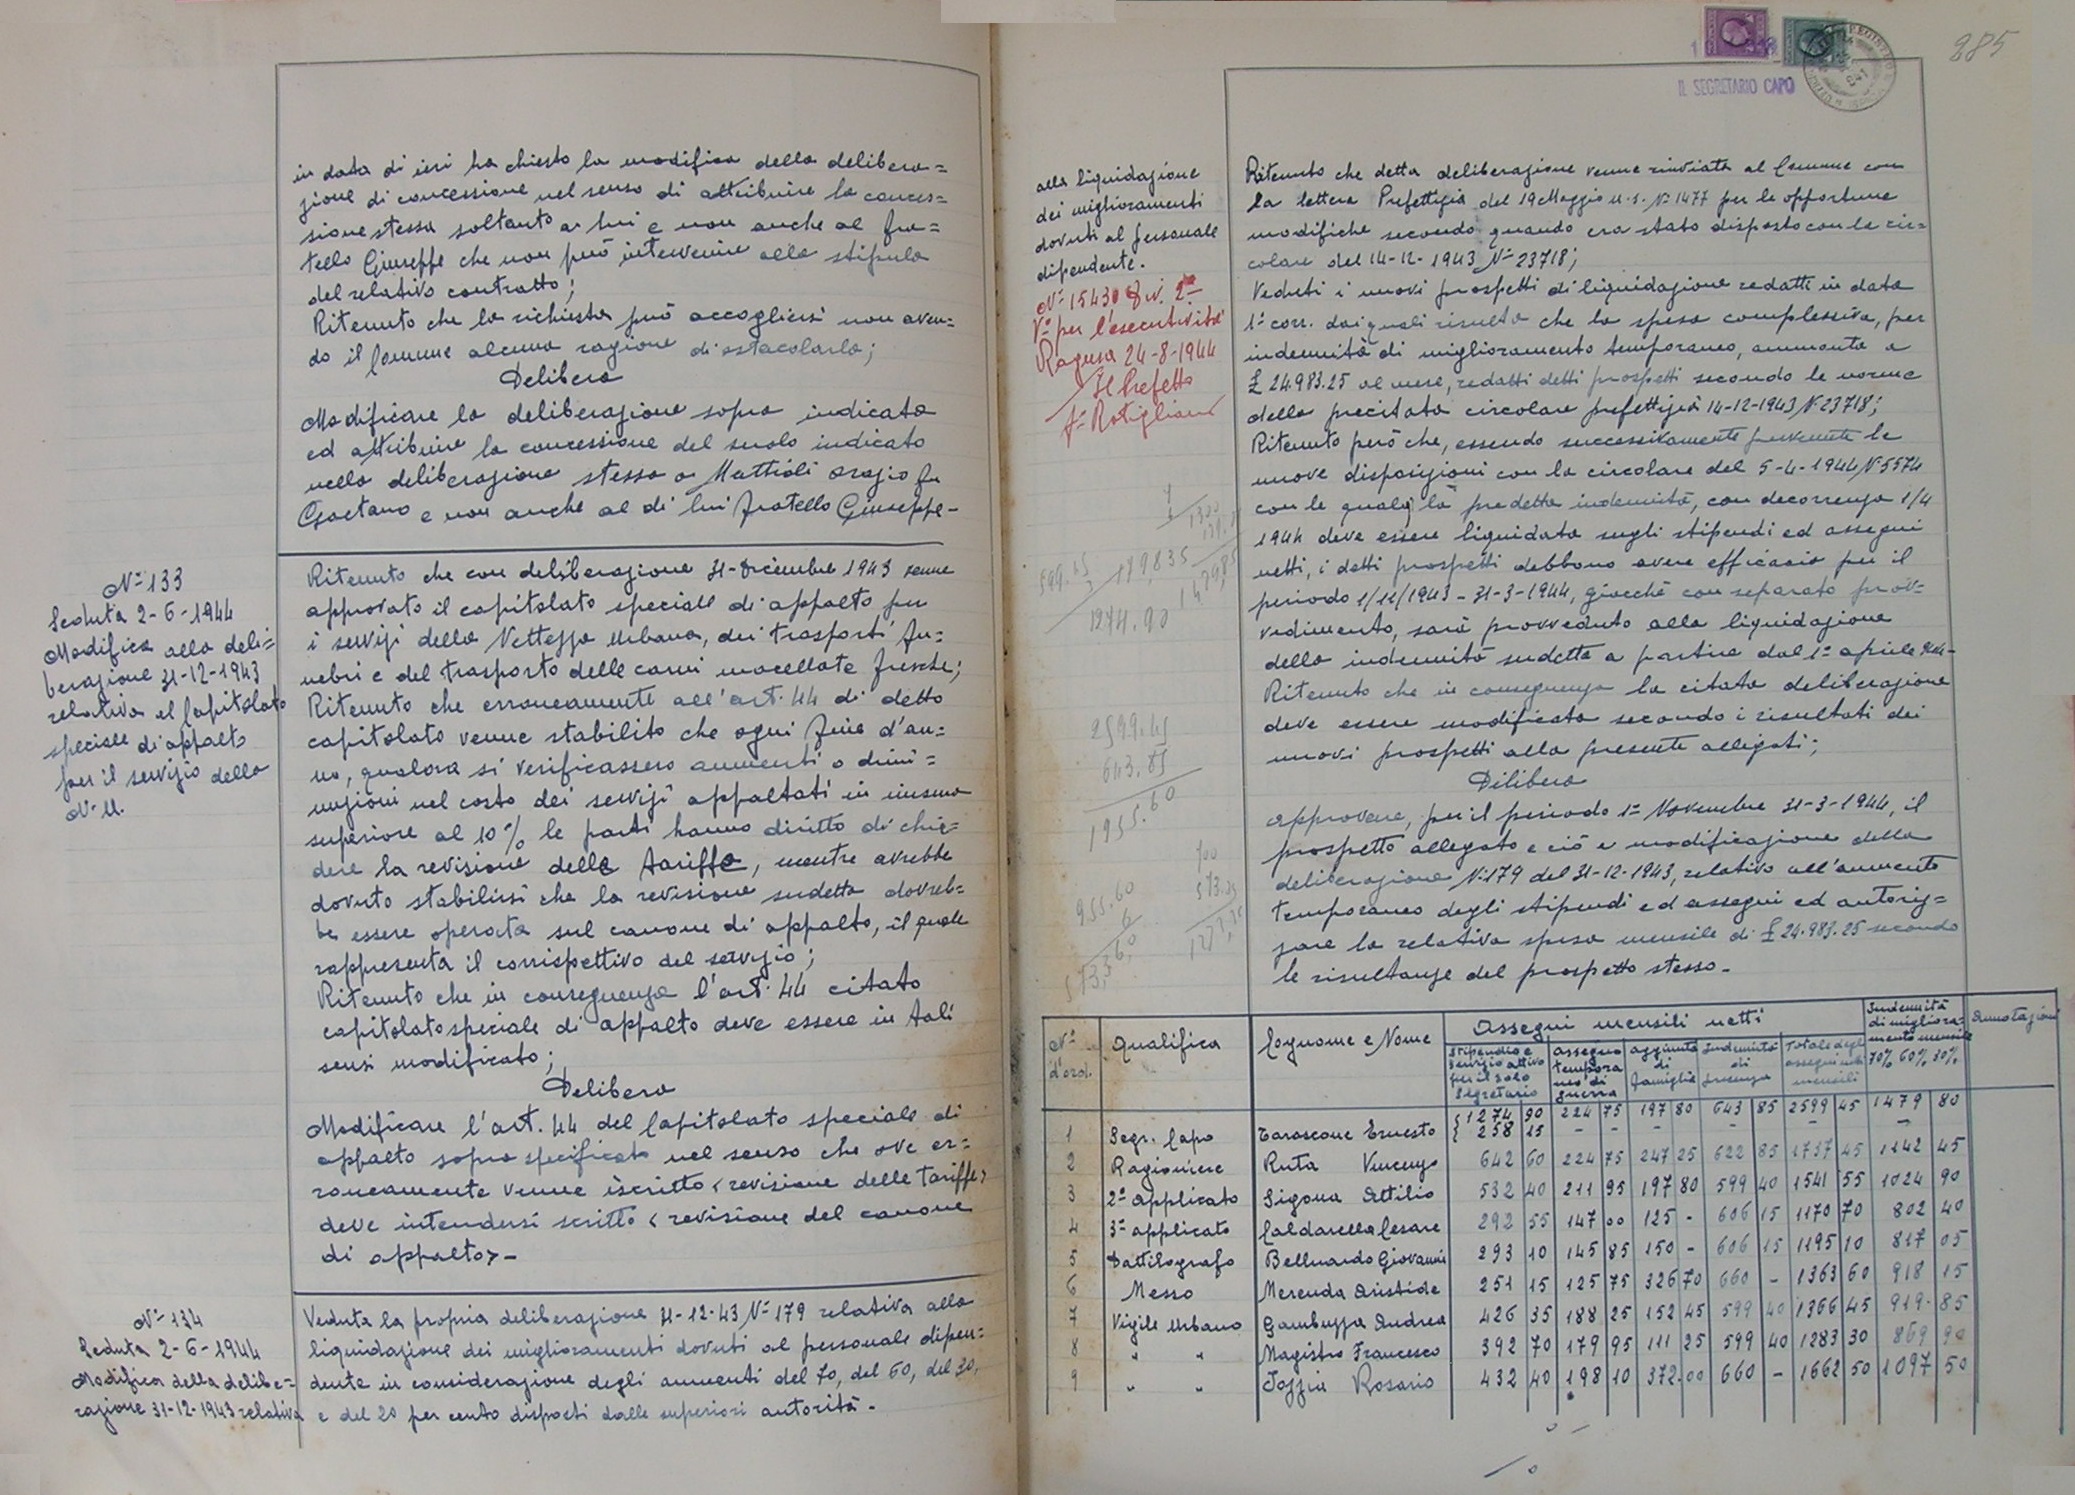 in data di ieri ha chiesto la modifica della delibera=
zione di concessione nel senso di attribuire la conces=
sione stessa soltanto a lui e non anche al fra=
tello Giuseppe che non può intervenire alla stipula
del relativo contratto;
Ritenuto che la richiesta può accogliersi non aven=
do il Comune alcuna ragione di ostacolarla;
Delibera
Modificare la deliberazione sopra indicata
ed attribuire la concessione del suolo indicato
nella deliberazione stessa a Mattioli Orazio fu
Gaetano e non anche al di lui fratello Giuseppe-
N° 133
Seduta 2-6-1944
Modifica alla deli=
berazione 31-12-1943
relativa al Capitolato
speciale di appalto
per il servizio della
N. U.
Ritenuto che con deliberazione 31-Dicembre 1943 venne
approvato il capitolato speciale di appalto per
i servizi della Nettezza Urbana, dei trasporti fu=
nebri e del trasporto delle carni macellate fresche;
Ritenuto che erroneamente all'art. 44 di detto
capitolato venne stabilito che ogni fine d'an=
no, qualora si verificassero aumenti o dimi=
nuzioni nel costo dei servizi appaltati in misura
superiore al 10% le parti hanno diritto di chie=
dere la revisione delle tariffe, mentre avrebbe
dovuto stabilirsi che la revisione sudetta dovreb=
be essere operata sul canone di appalto, il quale
rappresenta il corrispettivo del servizio;
Ritenuto che in conseguenza l'art. 44 citato
capitolato speciale di appalto deve essere in tali
sensi modificato;
Delibera
Modificare l'art. 44 del Capitolato speciale di
appalto sopra specificato nel senso che ove er=
roneamente venne iscritto < revisione delle tariffe>
deve intendersi scritto < revisione del canone
di appalto> -
N° 134
Seduta 2-6-1944
Modifica della delibe=
razione 31-12-1943 relativa
Veduta la propria deliberazione 31-12-43 N° 179 relativa alla
liquidazione dei miglioramenti dovuti al personale dipen=
dente in considerazione degli aumenti del 70, del 60, del 30,
e del 20 per cento disposti dalle superiori autorità -
IL SEGRETARIO CAPO
285
alla liquidazione
dei miglioramenti
dovuti al personale
dipendente.
N° 15430 Div. 2ª
V° per l'esecutività
Ragusa 24-8-1944
Il Prefetto
Ritenuto che detta deliberazione venne rinviata al Comune con
la lettera Prefettizia del 19 Maggio u.s. N° 1477 per le opportune
modifiche secondo quando era stato disposto con la cir=
colare del 14-12-1943 N° 23718;
Veduti i nuovi prospetti di liquidazione redatti in data
1° corr. dai quali risulta che la spesa complessiva, per
indennità di miglioramento temporaneo, ammonta a
£ 24.983.25 al mese, redatti detti prospetti secondo le norme
della precitata circolare prefettizia 14-12-1943 N. 23718;
Ritenuto però che, essendo successivamente pervenute le
nuove disposizioni con la circolare del 5-4-1944 N. 5574
con le quali la predetta indennità, con decorrenza 1/4
1944 deve essere liquidata sugli stipendi ed assegni
netti, i detti prospetti debbono avere efficacia per il
periodo 1/11/1943 - 31-3-1944, giacché con separato prov=
vedimento, sarà provveduto alla liquidazione
della indennità sudetta a partire dal 1° aprile 1944-
Ritenuto che in conseguenza la citata deliberazione
deve essere modificata secondo i risultati dei
nuovi prospetti alla presente allegati;
Delibera
approvare, per il periodo 1° Novembre 31-3-1944, il
prospetto allegato e ciò a modificazione della
deliberazione N. 179 del 31-12-1943, relativo all'aumento
temporaneo degli stipendi ed assegni ed autoriz=
zare la relativa spesa mensile di £ 24.983.25 secondo
le risultanze del prospetto stesso -
599.45 189,835 1300
1274.90 1479,85
2599.45
643.85
1955.60
N° d'ord. Qualifica Cognome e Nome Assegni mensili netti Indennità di migliora=mento mensile 70% 60% 30% Annotazioni
Stipendio e servizio attivo per il solo Segretario assegno temporaneo di guerra aggiunta di famiglia Indennità di presenza Totale degli assegni netti mensili
1 Segr. Capo Tarascone Ernesto { 1274 90 224 75 197 80 643 85 2599 45 1479 80
{ 258 15 - - - - -
2 Ragioniere Ruta Vincenzo 642 60 224 75 247 25 622 85 1737 45 1142 45
3 2° applicato Sigona Attilio 532 40 211 95 197 80 599 40 1541 55 1024 90
4 3° applicato Caldarella Cesare 292 55 147 00 125 - 606 15 1170 70 802 40
5 Dattilografo Belluardo Giovanni 293 10 145 85 150 - 606 15 1195 10 817 05
6 Messo Merenda Aristide 251 15 125 75 326 70 660 - 1363 60 918 15
7 Vigile Urbano Gambuzza Andrea 426 35 188 25 152 45 599 40 1366 45 919 85
8 " " Magistro Francesco 392 70 179 95 111 25 599 40 1283 30 869 90
9 " " Iozzia Rosario 432 40 198 10 372.00 660 - 1662 50 1097 50